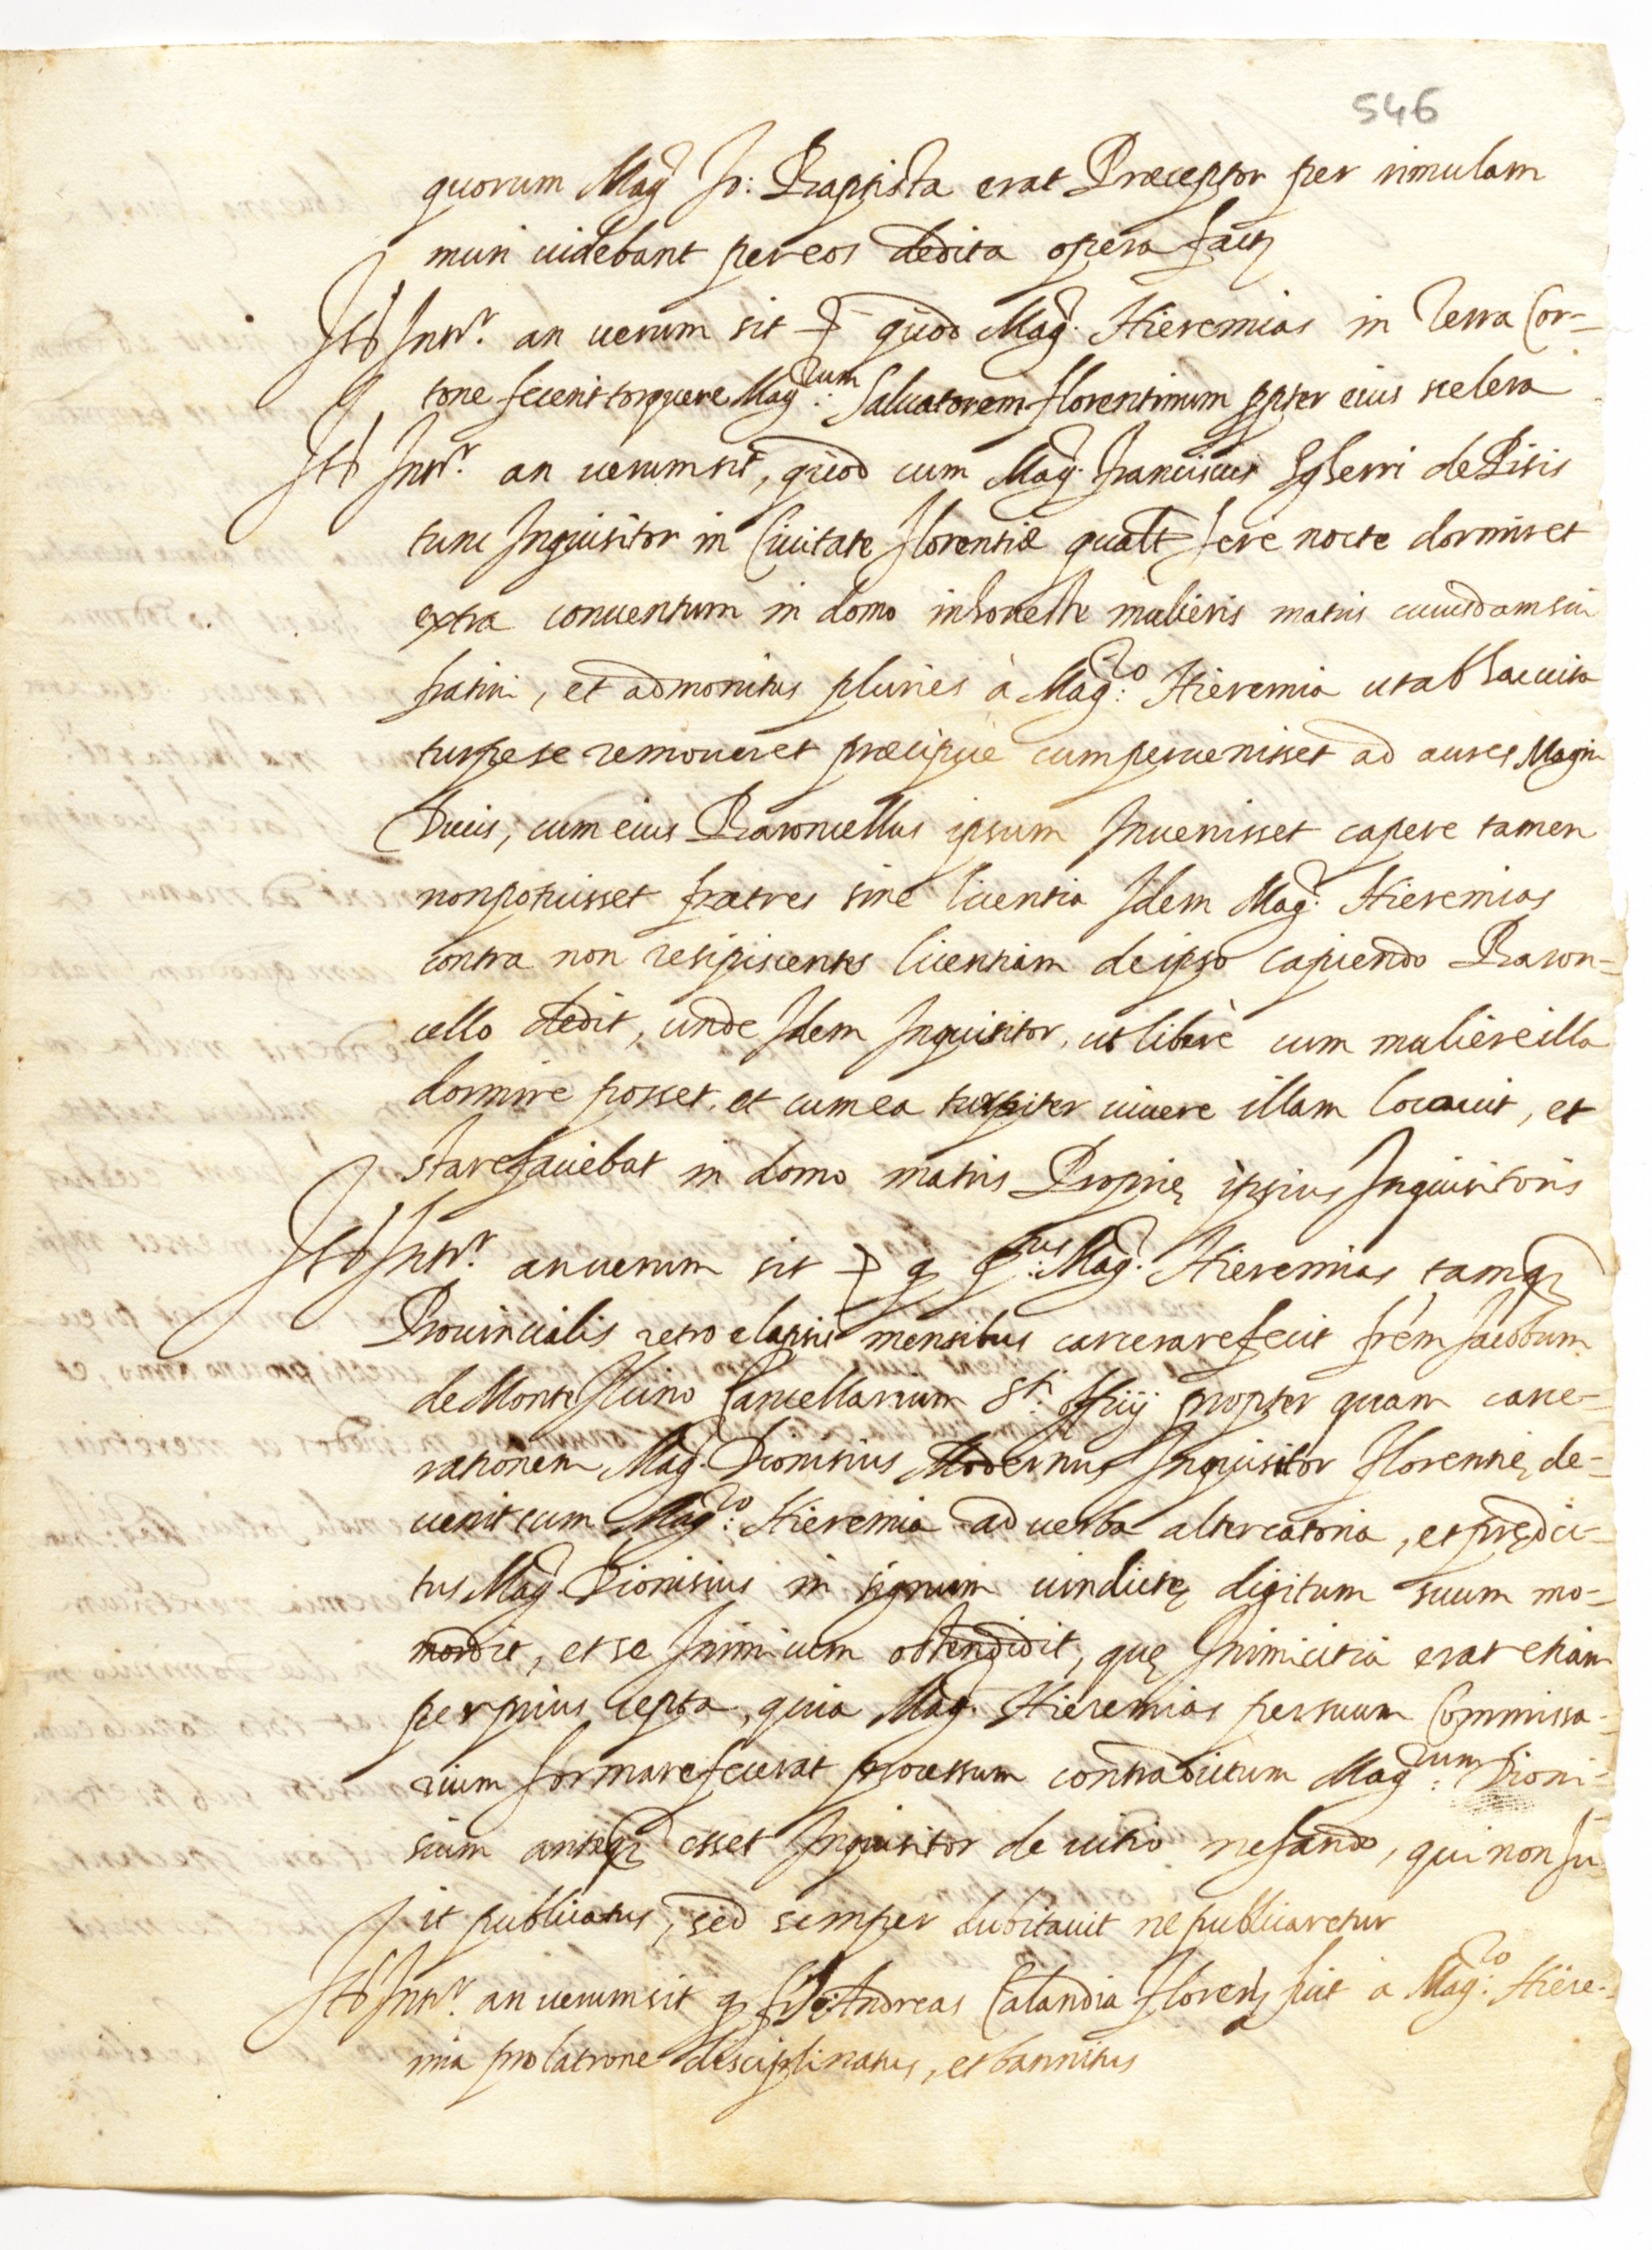 546
quorum Mag.r Jo: Baptista erat Præceptor per rimulam
muri uidebant per eos dedita opera fact
Itē Intr.r an uerum sit quod Mag.r Hieremias in Terra Cor-
tone fecerit torquere Mag.rum Saluatorem florentinum ppter eius scelera
Itē Intr.r an uerum sit, quod cum Mag.r franciscus Sgherri de Pisis
tunc Inquisitor in Ciuitate Florentiæ qualt fere nocte dormiret
extra conuentum in domo inhoneste mulieris matris cuiusdam sui
fratini, et admonitus pluries à Mag.ro Hieremia ut ab hac uita
turpe se remoueret præcipuè cum peruenisset ad aures Magni
Ducis, cum eius Baroncellus ipsum Inuenisset capere tamen
non potuisset fratres sine licentia Idem Mag.r Hieremias
contra non resipiscentes licentiam de ipso capiendo Baron-
cello dedit, unde Idem Inquisitor, ut liberè cum muliere illa
dormire posset, et cum ea turpiter uiuere illam locauit, et
stare faciebat in domo matris Proprię ipsius Inquisitoris
Itē Intr.r an uerum sit q P.tus Mag.r Hieremias tamq
Prouincialis retro elapsis mensibus carcerare fecit frem Jacobum
de Monte Iluno Cancellarium S.ti Offitij propter quam carce-
rationem Mag.r Dionisius Modernus Inquisitor Florentię de-
uenit cum Mag.ro Hieremia ad uerba altercatoria, et prędic-
tus Mag.r Dionisius in signum uindictę digitum suum mo-
mordit, et se Inimicum ostendidit, quę Inimicitia erat etiam
per prius cepta, quia Mag.r Hieremias per suum Commissa-
rium formare fecerat processum contra dictum Mag.rum Dioni-
sium anteq esset Inquisitor de uitio nefando, qui non fu-
it publicatus, sed semper dubitauit ne publicaretur
Itē Intr.r an uerum sit q Andreas Calandia Floren fuit à Mag.ro Hiere-
mia pro latrone disciplinatus, et bannitus